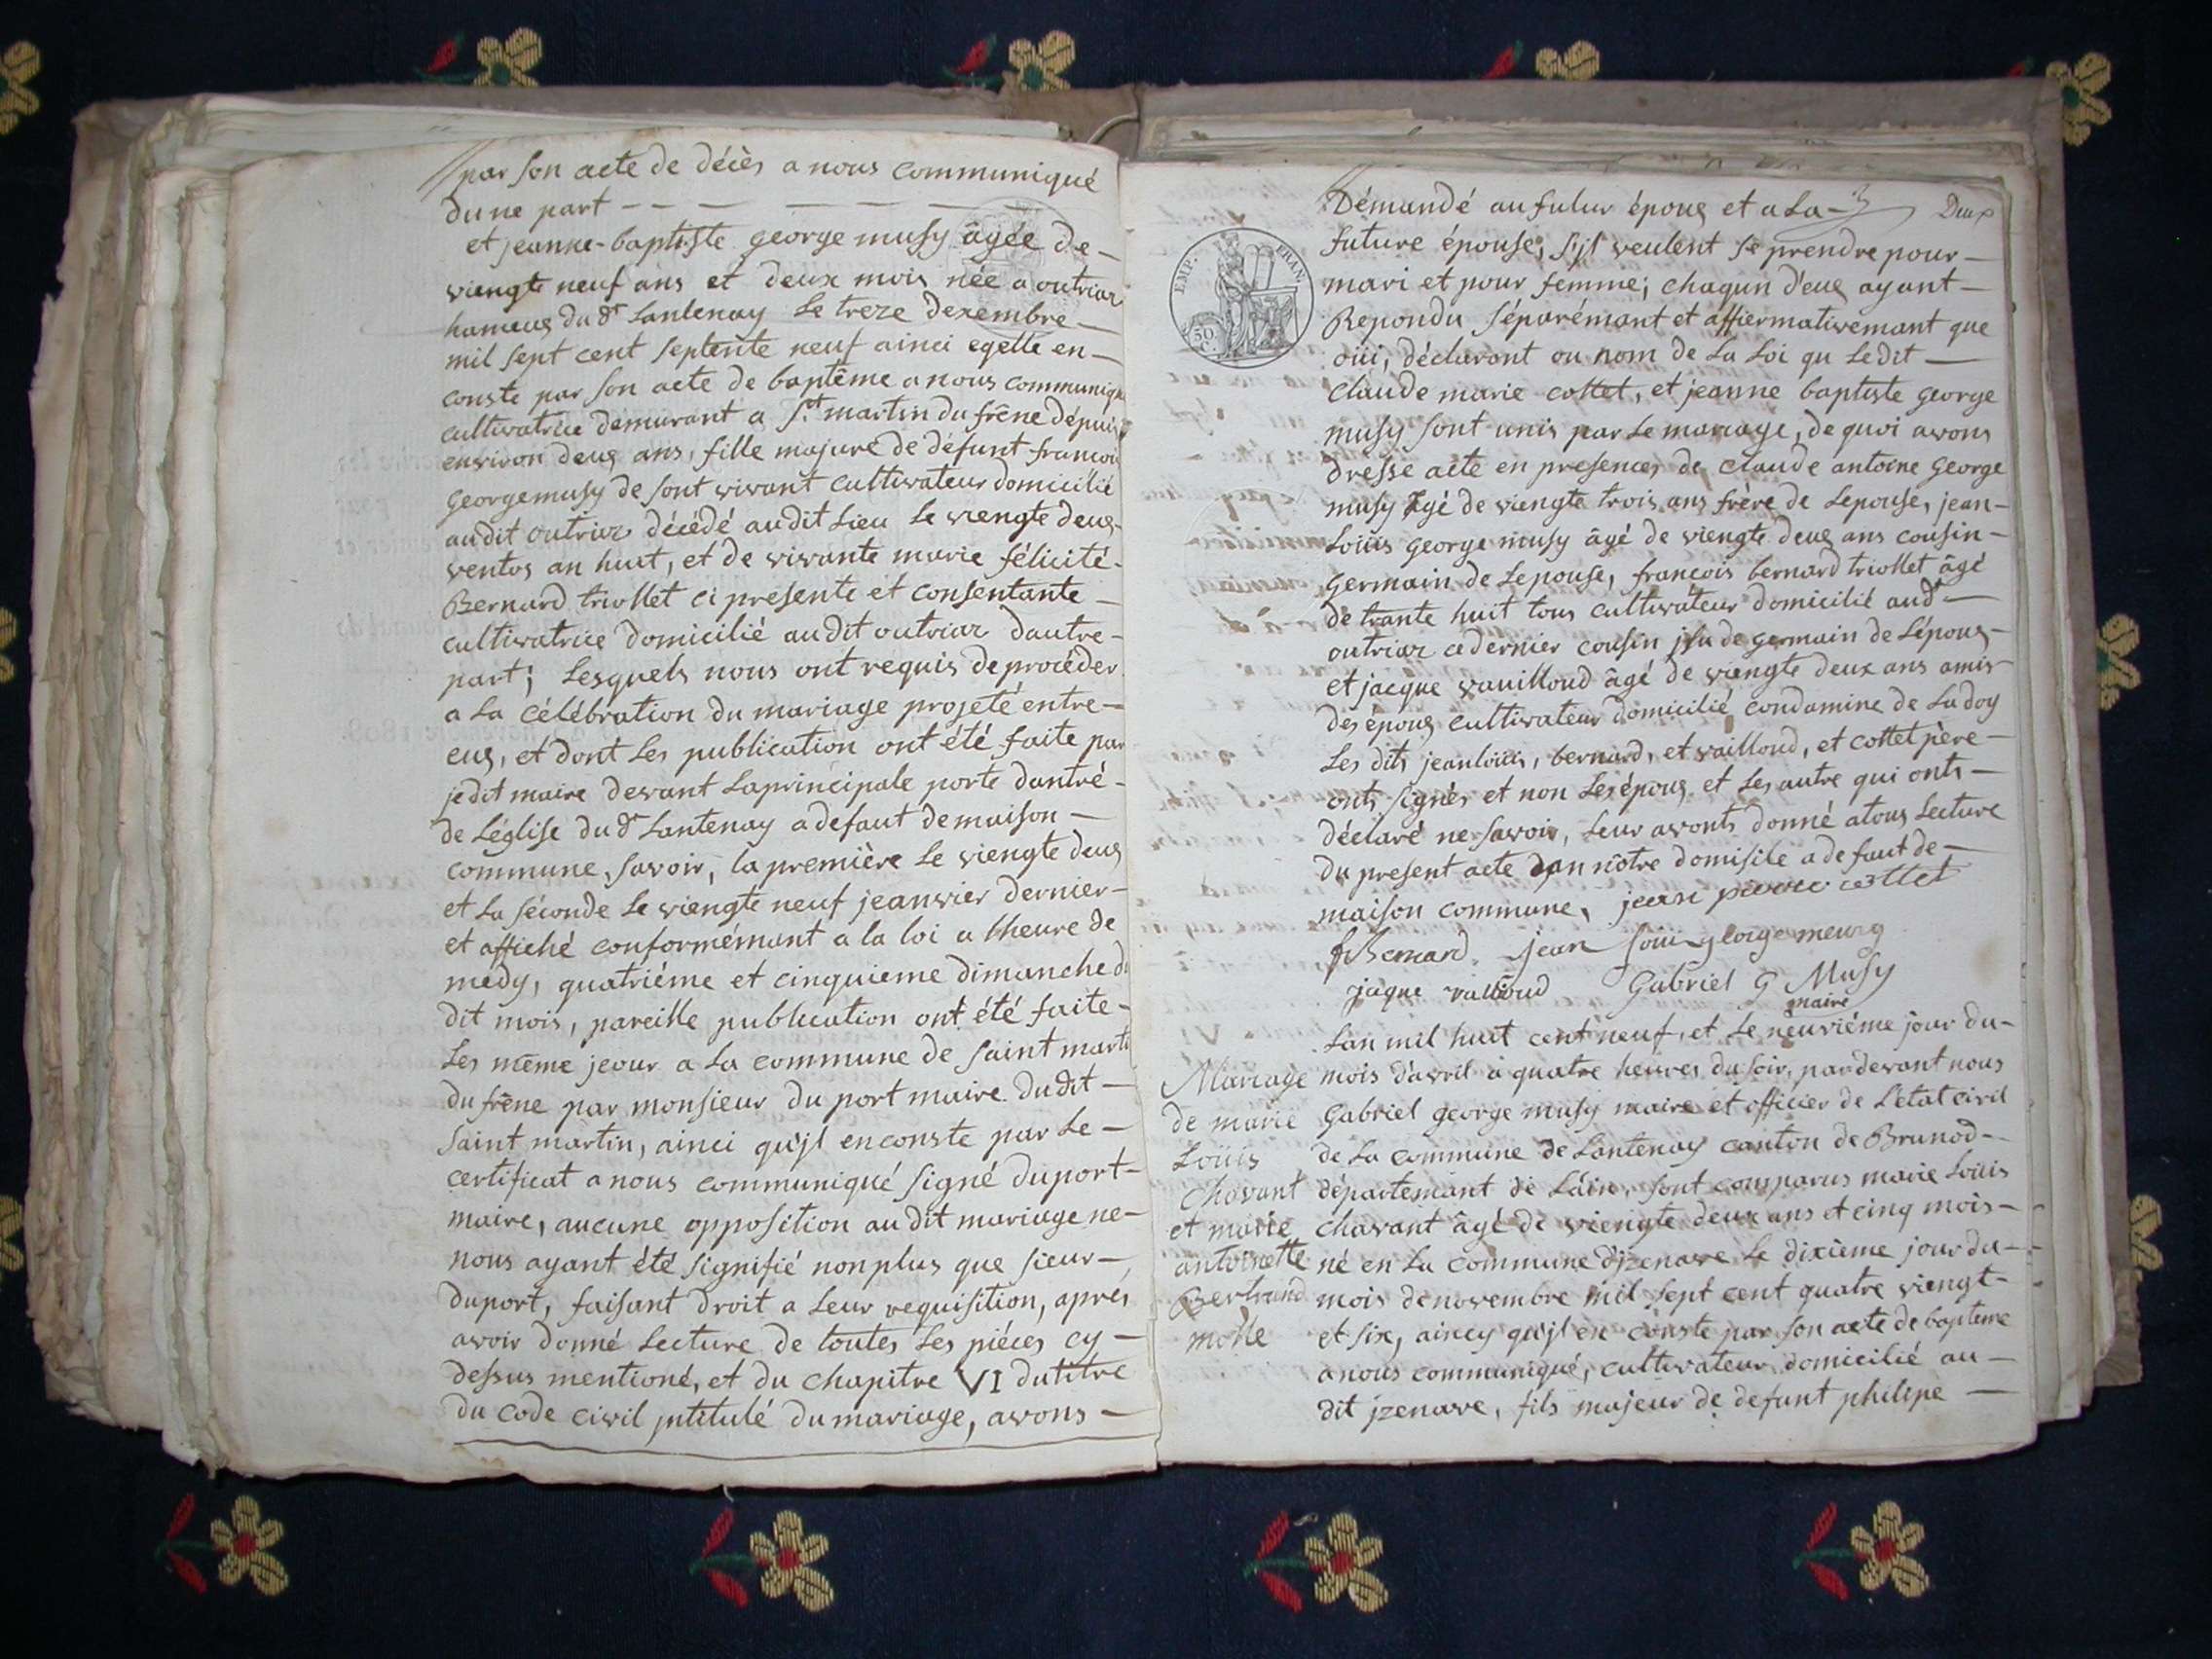 par son acte de décès a nous communiqué
dune part
et jeanne-baptiste george musy âgée de
viengte neuf ans et deux mois née a outriaz
hameus du dt Lantenay Le treze dexembre
mil sept cent septente neuf ainci egelle en
conste par son acte de baptême a nous communiqu
cultivatrice demurant a St. martin du frêne dépuis
environ deus ans, fille majure de défunt francoi
george musy de sont vivant cultivateur domicilié
audit outriaz décédé audit Lieu Le viengte deus
ventos an huit, et de vivante marie félicité
Bernard triollet ci presente et consentante
cultivatrice domicilié audit outriaz dautre
part; Lesquels nous ont requis de procéder
a La célébration du mariage projeté entre
eus, et dont Les publication ont été faite par
je dit maire devant Laprincipale porte dantré
de Léglise du dt Lantenay a defaut de maison
commune, savoir, la première Le viengte deus
et La séconde Le viengte neuf jeanvier dernier
et affiché conformémant a la loi a lheure de
medy, quatriéme et cinquieme dimanche du
dit mois, pareille publication ont été faite
Les même jeour a La commune de saint marti
du frêne par monsieur du port maire dudit
saint martin, ainci qu'jl enconste par Le
certificat a nous communiqué signé duport
maire, aucune opposition au dit mariage ne
nous ayant été signifié nonplus que sieur
duport, faisant droit a Leur requisition, aprés
avoir donné Lecture de toutes Les piéces cy
dessus mentioné, et du chapitre VI du titre
du code civil jntitulé du mariage, avons
Deux
Démandé au futur épous et a La
future épouse, s'jl veulent se prendre pour
mari et pour femme; chaqun d'eus ayant
Repondu séparémant et affiermativemant que
oüi, déclaront ou nom de La Loi qu Ledit
claude marie cottet, et jeanne baptiste george
musy sont unis par Le mariage, de quoi avons
dresse acte en presences de claude antoine george
musy âgé de viengte trois ans frère de Lepouse, jean
Loüis george musy âgé de viengte deus ans cousin
germain de Lepouse, francois bernard triollet âgé
de trante huit tous cultivateur domicilié aud
outriaz cedernier cousin jsu de germain de Lépous
et jacque vauilloud âgé de viengte deux ans amis
des épous cultivateur domicilié condamine de Ladoy
Les dits jeanloüis, bernard, et vailloud, et cottet père
onts signés et non Les épous et Les autre qui onts
déclaré ne savoir, Leur avonts donné atous Lecture
du present acte dan nôtre domisile a defaut de
maison commune, jean pierre cottet
f Bernard. jean Loüi george meusy
jaque valloud Gabriel G Musy
maire
EMP. FRAN.
50 C.
Lan mil huit cent neuf, et Le neuviéme jour du
mois d'avril a quatre heures du soir, pardevant nous
gabriel george musy maire et officier de Letat civil
de La commune de Lantenay canton de Brunod
départemant de Láin, sont comparus marie Loüis
chavant âgé de viengte deux ans et cinq mois
né en La commune d'jzenave Le dixième jour du
mois de novembre mil sept cent quatre viengt
et six, aincy qu'jl en conste par son acte de baptême
a nous communiqué, cultivateur domicilié au
dit jzenave, fils majeur de defunt philipe
Mariage
de marie
Loüis
chavant
et marie
antoinette
Bertrand
molle